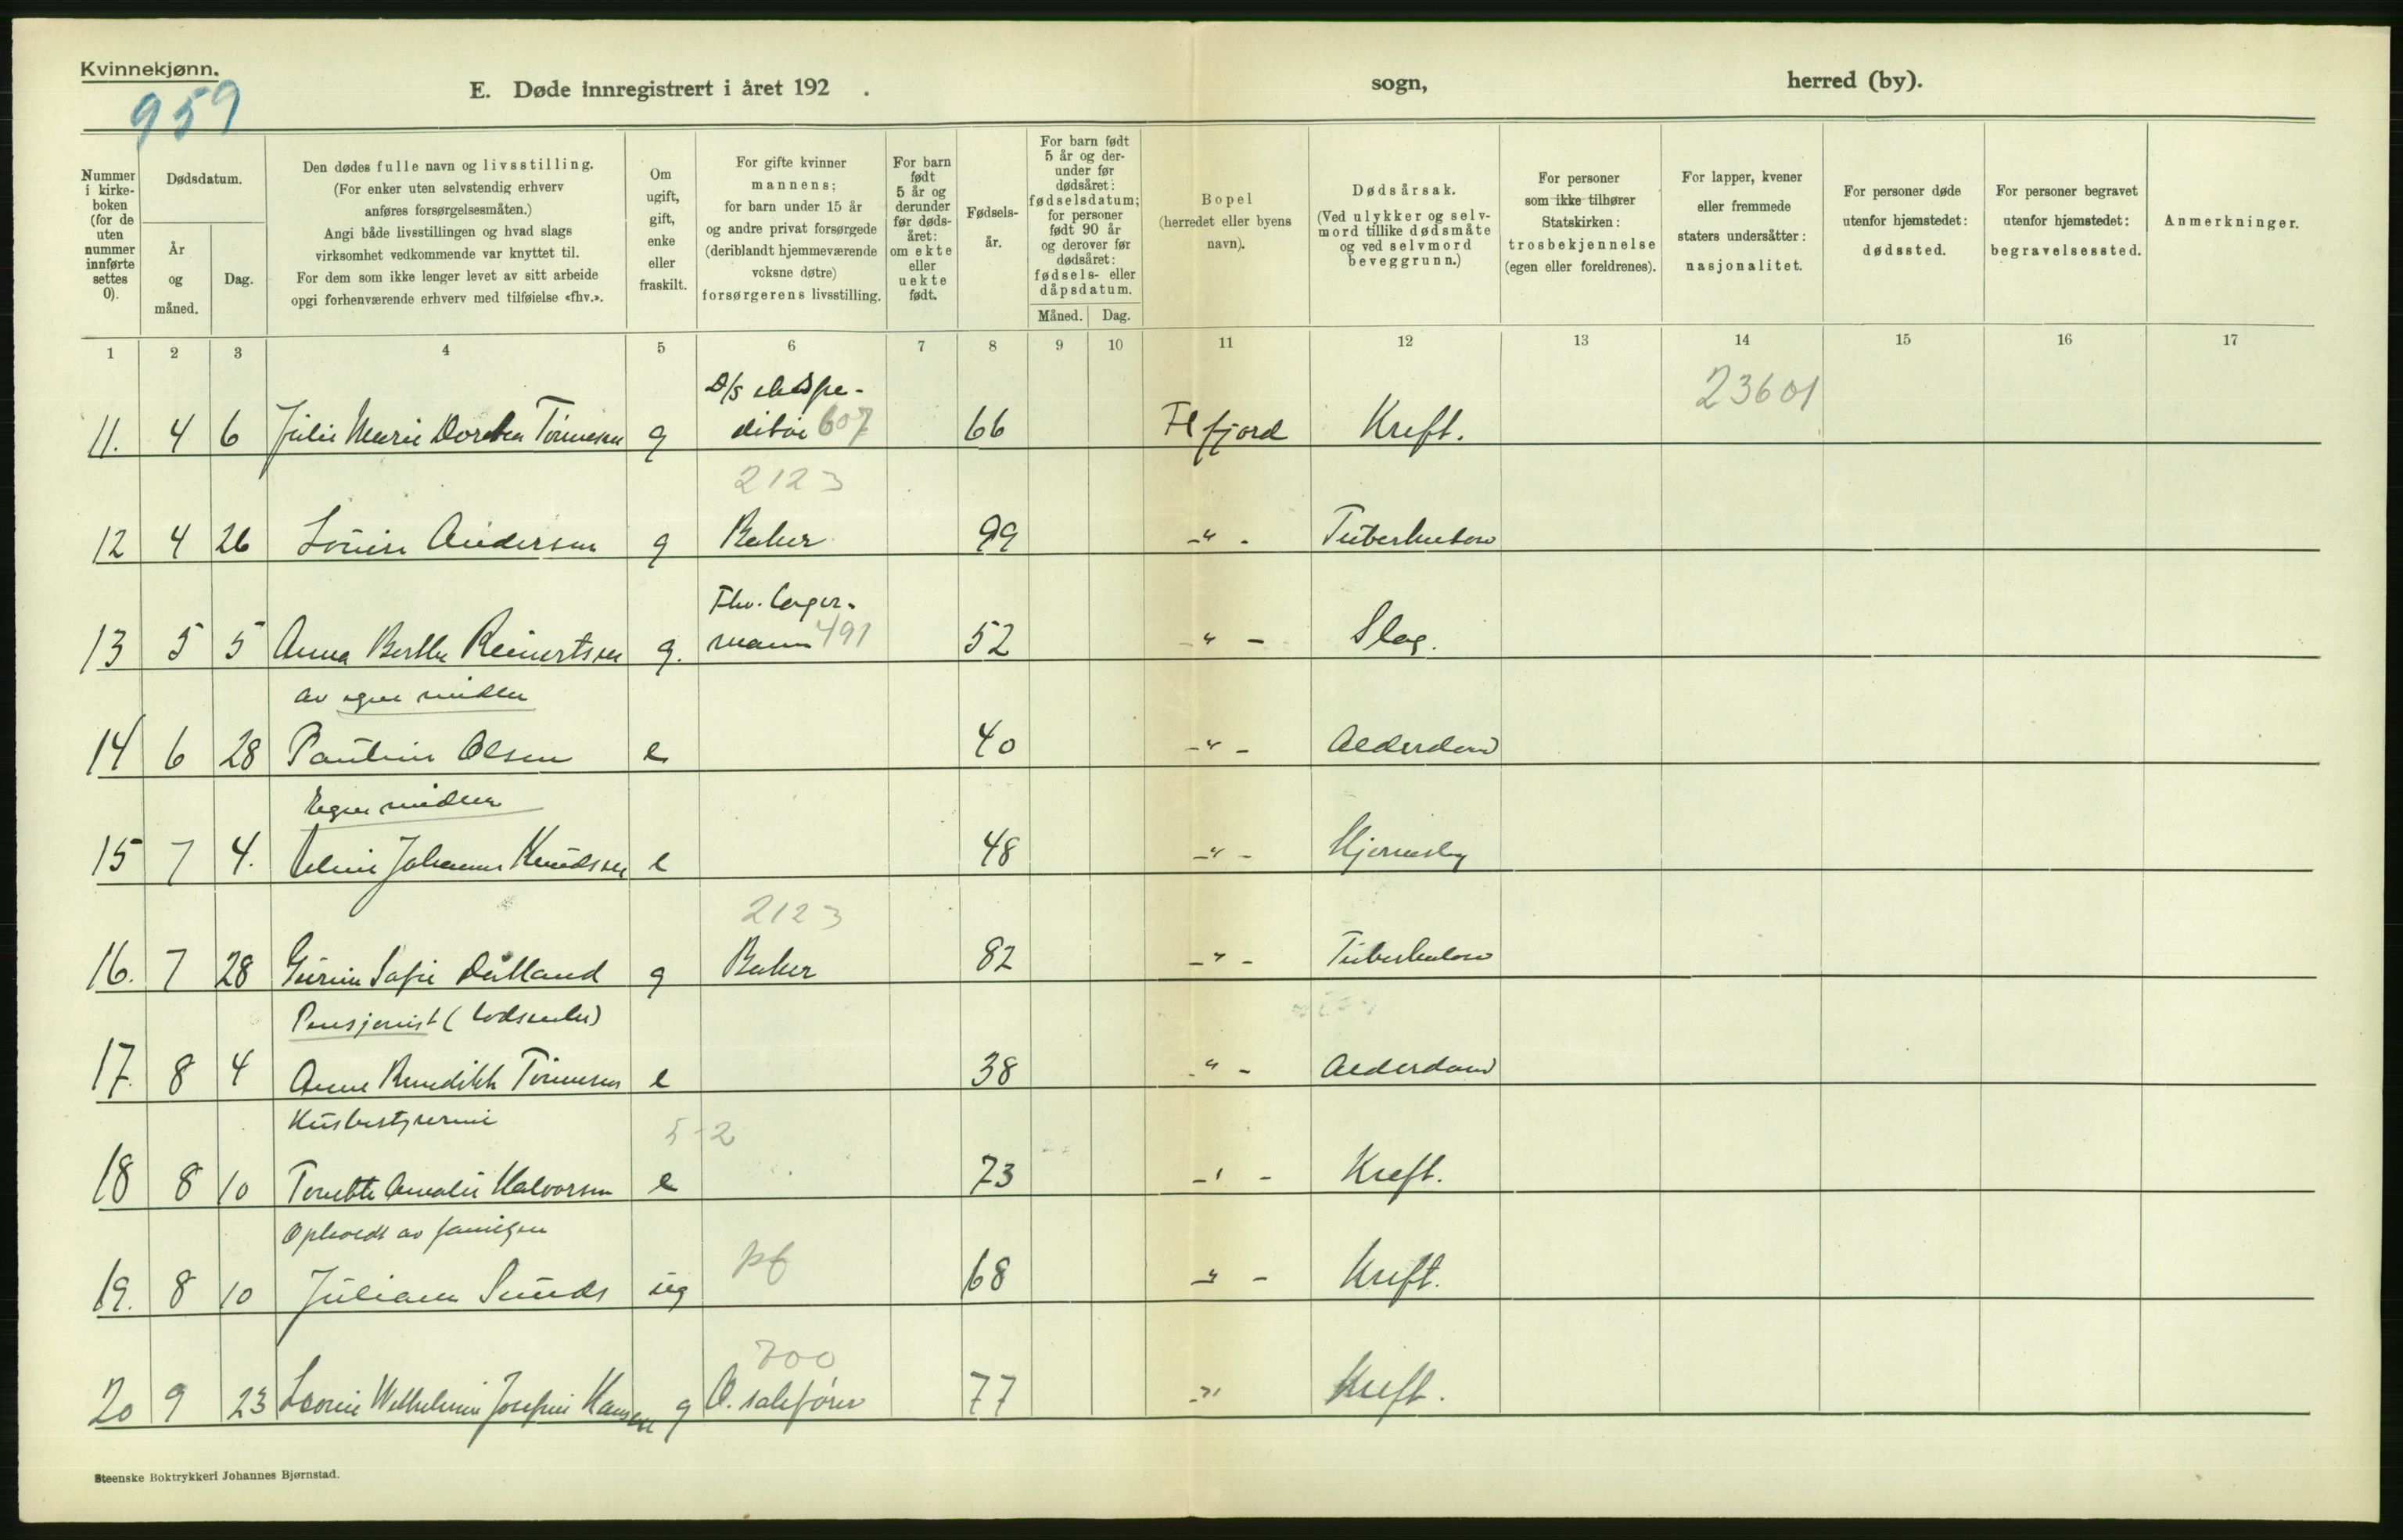 Kvinnekjønn.
959
E. Døde innregistrert i året 192 . sogn, herred (by).
Nummer i kirke-boken (for de uten nummer innførte settes 0).
Dødsdatum.
År og måned.
Dag.
Den dødes fulle navn og livsstilling.
(For enker uten selvstendig erhverv
anføres forsørgelsesmåten.)
Angi både livsstillingen og hvad slags
virksomhet vedkommende var knyttet til.
For dem som ikke lenger levet av sitt arbeide
opgi forhenværende erhverv med tilføielse «fhv.».
Om ugift, gift, enke eller fraskilt.
For gifte kvinner
mannens;
for barn under 15 år
og andre privat forsørgede
(deriblandt hjemmeværende
voksne døtre)
forsørgerens livsstilling.
For barn født 5 år og derunder før døds-året: om ekte eller uekte født.
Fødsels-år.
For barn født 5 år og der-under før dødsåret: fødselsdatum; for personer født 90 år og derover før dødsåret: fødsels- eller dåpsdatum.
Måned. Dag.
Bopel
(herredet eller byens
navn).
Dødsårsak.
(Ved ulykker og selv-
mord tillike dødsmåte
og ved selvmord
beveggrunn.)
For personer
som ikke tilhører
Statskirken:
trosbekjennelse
(egen eller foreldrenes).
For lapper, kvener
eller fremmede
staters undersåtter:
nasjonalitet.
For personer døde
utenfor hjemstedet:
dødssted.
For personer begravet
utenfor hjemstedet:
begravelsessted.
Anmerkninger.
1 2 3 4 5 6 7 8 9 10 11 12 13 14 15 16 17
23601
D/s ekspe-
11. 4 6 Julie Marie Dorthea Tønnesen g ditør 607 66 Flfjord Kreft.
2123
12 4 26 Louise Andersen g Baker 99 -"- Tuberkulose
Fhv. lager-
13 5 5 Anna Berthe Reinertsen g. mann 491 52 -"- Slag.
av egne midler
14 6 28 Pauline Olsen e 40 -"- Alderdom
Egne midler
15 7 4. Johanne Knudsen e 48 -"-
2123
16. 7 28 Sofie g Baker 82 -"- Tuberkulose
Pensjonist (
17. 8 4 Anne Benedikte Tønnesen e 38 -"- Alderdom
Husbestyrerinne
5-2
18 8 10 Tonette Amalie Halvorsen e 73 -"- Kreft.
Opholdt av familjen
pf
19. 8 10 Juliane Sunds ug 68 -"- Kreft.
700
20 9 23 Josefine Hansen g O. sakfører 77 -"- Kreft.
Steenske Boktrykkeri Johannes Bjørnstad.